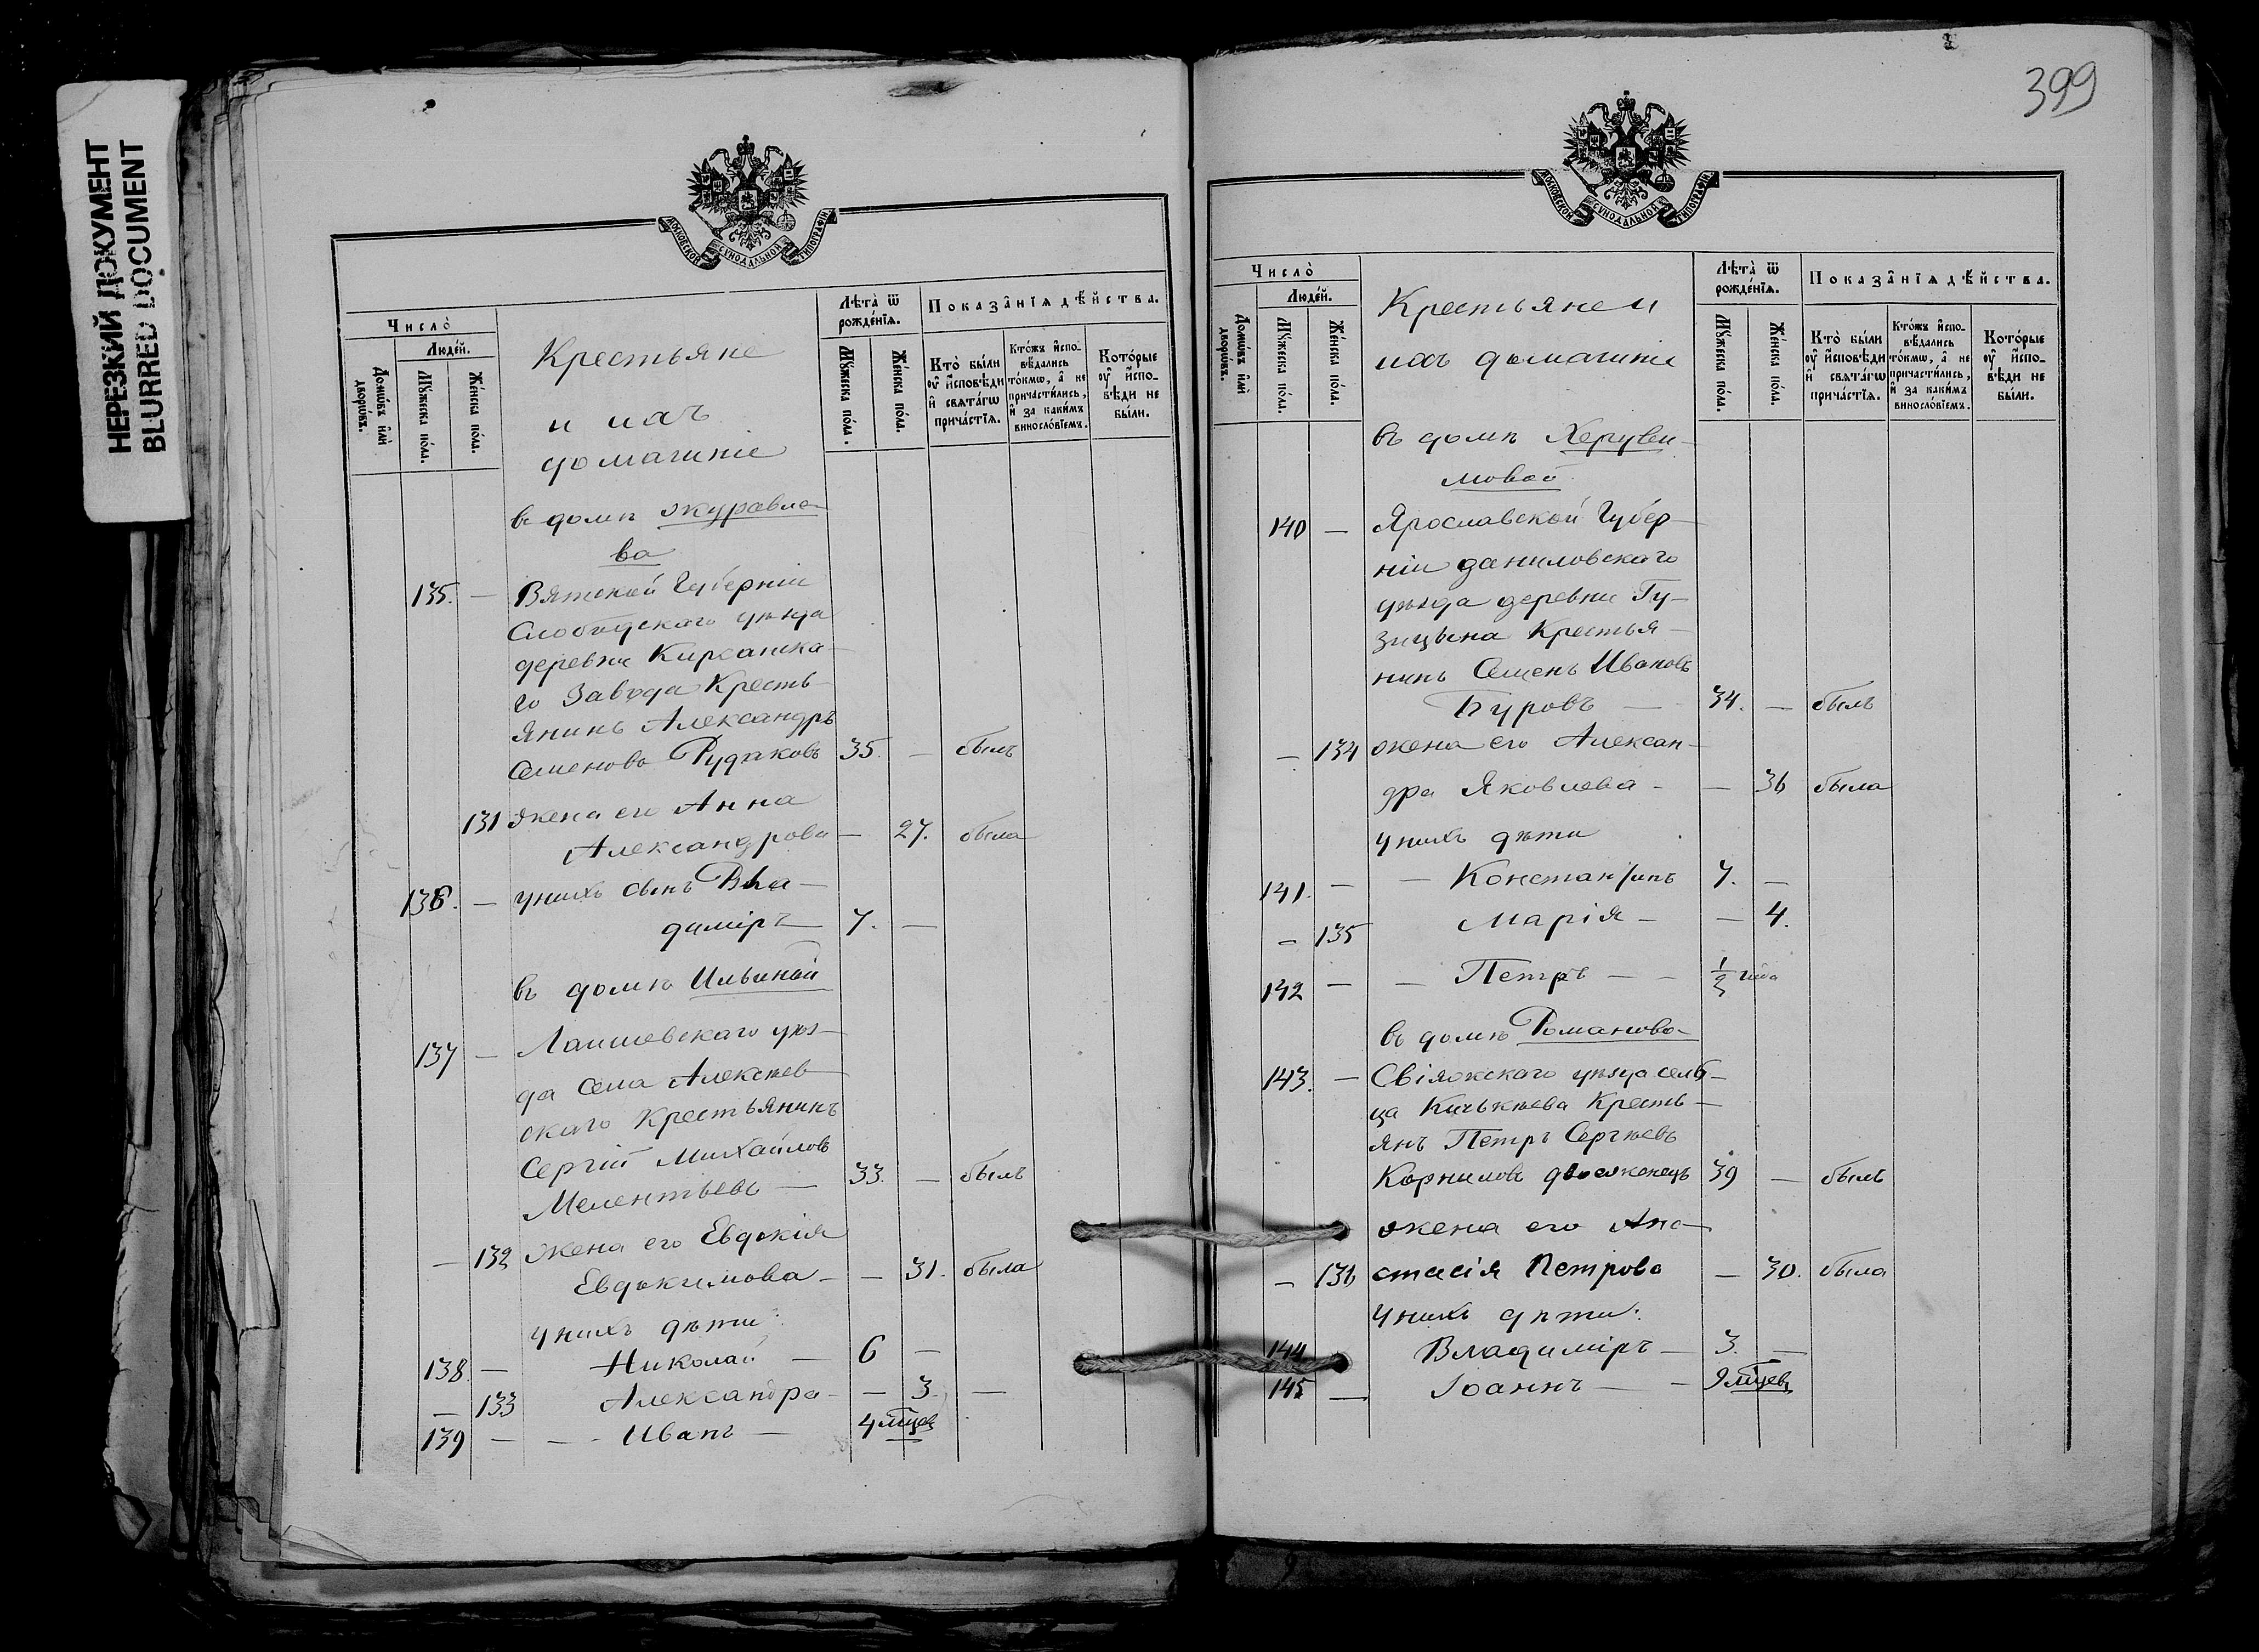 НЕРЕЗКИЙ ДОКУМЕНТ
BLURRED DOCUMENT
МОСКОВСКОЙ СѴНОДАЛЬНОЙ ТИПОГРАФІИ
Число̀
Люде́й.
Домѡ́въ и҆лѝ дворѡ́въ.
Мꙋ́жеска по́ла.
Же́нска по́ла.
Крестьяне
и ихъ
домашніе
Лѣта̀ ѿ рожде́нїѧ.
Мꙋ́жеска по́ла.
Же́нска по́ла.
Показа̑нїѧ дѣ́йства.
Кто̀ бы́ли оу҆ и҆сповѣди и҆ свѧта́гѡ прича́стїѧ.
Кто́жъ и҆сповѣ́дались то́кмѡ, а҆ не причасти́лись, и҆ за каки́мъ винослóвїемъ.
Кото́рые оу҆ и҆сповѣди не бы́ли.
въ домѣ Журавле-
ва
135. — Вятской Губерніи
Слободскаго уѣзда
деревни Кирсинска-
го Завода Кресть-
янинъ Александръ
Семеновъ Рудаковъ 35. — былъ
131 жена его Анна
Александрова — 27. была
136. — у нихъ сынъ Вла-
диміръ — 7. —
въ домѣ Ильиной
137 — Лаишевскаго уѣз-
да села Алексѣев-
скаго Крестьянинъ
Сергій Михайловъ
Мелентьевъ — 33. — былъ
— 132 жена его Евдокія
Евдокимова — — 31. была
у нихъ дѣти:
138. — Николай — 6 —
— 133 Александра — — 3. —
139 — — Иванъ — 4 мѣцев
399
МОСКОВСКОЙ СѴНОДАЛЬНОЙ ТИПОГРАФІИ
Число̀
Люде́й.
Домѡ́въ и҆лѝ дворѡ́въ.
Мꙋ́жеска по́ла.
Же́нска по́ла.
Крестьяне и
ихъ домашніе
Лѣта̀ ѿ рожде́нїѧ.
Мꙋ́жеска по́ла.
Же́нска по́ла.
Показа̑нїѧ дѣ́йства.
Кто̀ бы́ли оу҆ и҆сповѣди и҆ свѧта́гѡ прича́стїѧ.
Кто́жъ и҆сповѣ́дались то́кмѡ, а҆ не причасти́лись, и҆ за каки́мъ винослóвїемъ.
Кото́рые оу҆ и҆сповѣди не бы́ли.
въ домѣ Херуви-
мовой
140 — Ярославской Губер-
ніи даниловскаго
уѣзда деревни Гу-
зицына Крестья-
нинъ Семенъ Ивановъ
Буровъ — 34. — былъ
— 134 жена его Алексан-
дра Яковлева — — 36 была
у нихъ дѣти
141. — — Константинъ 7. —
— 135 Марія — — 4.
142 — — Петръ — — 1/2 года
въ домѣ Романово-
143. — Свіяжскаго уѣзда сель-
ца Кичкѣева Кресть-
янъ Петръ Сергѣевъ
Корниловъ двоеженецъ 39 — былъ
жена его Ана-
— 136 стасія Петрова — 30. была
у нихъ дѣти:
144 Владиміръ — 3. —
145 — Іоаннъ — — 9 мѣцев